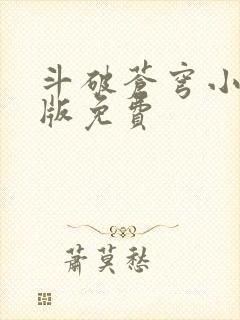 斗破苍穹小
版免費
蕭莫愁